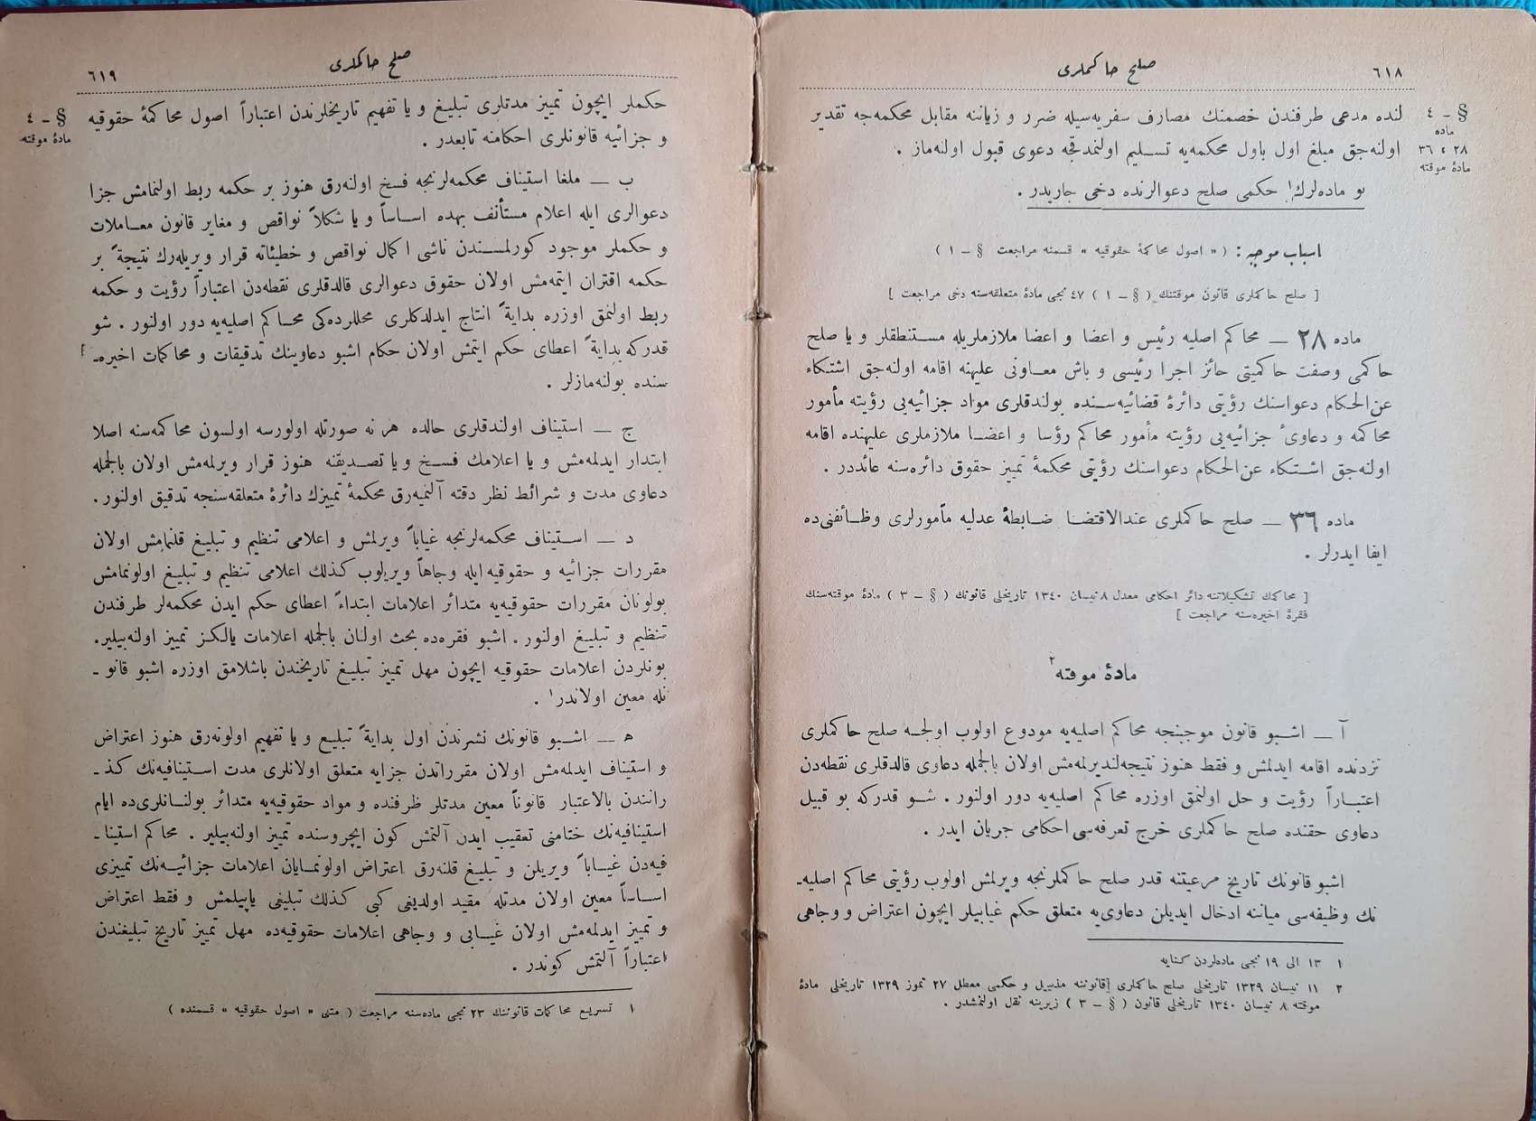 ٦١٨
صلح حاكملری
§ – ٤
ماده
٢٨ ، ٣٦
مادۀ موقته
لنده مدعی طرفندن خصمنك مصارف سفریه‌سیله ضرر و زیاننه مقابل محكمه‌جه تقدیر
اولنه‌جق مبلغ اول باول محكمه‌یه تسلیم اولنمدقجه دعوی قبول اولنه‌ماز .
بو ماده‌لرك١ حكمی صلح دعوالرنده دخی جاریدر .
اسباب موجبه : ( « اصول محاكمۀ حقوقیه » قسمنه مراجعت § – ١ )
[ صلح حاكملری قانون موقتنك ( § – ١ ) ٤٧ نجی مادۀ متعلقه‌سنه دخی مراجعت ]
ماده ٢٨ — محاكم اصلیه رئیس و اعضا و اعضا ملازملریله مستنطقلر و یا صلح
حاكمی وصفت حاكمیتی حائز اجرا رئیسی و باش معاونی علیهنه اقامه اولنه‌جق اشتكاء
عن‌الحكام دعواسنك رؤیتی دائرۀ قضائیه‌سنده بولندقلری مواد جزائیه‌یی رؤیته مأمور
محاكمه و دعاوئ جزائیه‌یی رؤیته مأمور محاكم رؤسا و اعضا ملازملری علیهنده اقامه
اولنه‌جق اشتكاء عن‌الحكام دعواسنك رؤیتی محكمۀ تمییز حقوق دائره‌سنه عائددر .
ماده ٣٦ — صلح حاكملری عندالاقتضا ضابطۀ عدلیه مأمورلری وظائفنی‌ده
ایفا ایدرلر .
[ محاكمك تشكیلاتنه دائر احكامی معدل ٨ نیسان ١٣٤٠ تاریخلی قانونك ( § – ٣ ) مادۀ موقته‌سنك
فقرۀ اخیره‌سنه مراجعت ]
مادۀ موقته٢
آ — اشبو قانون موجبنجه محاكم اصلیه‌یه مودوع اولوب اولجه صلح حاكملری
نزدنده اقامه ایدلمش و فقط هنوز نتیجه‌لندیرلمه‌مش اولان بالجمله دعاوی قالدقلری نقطه‌دن
اعتباراً رؤیت و حل اولنمق اوزره محاكم اصلیه‌یه دور اولنور . شو قدركه بو قبیل
دعاوی حقنده صلح حاكملری خرج تعرفه‌سی احكامی جریان ایدر .
اشبو قانونك تاریخ مرعیتنه قدر صلح حاكملرنجه ویرلمش اولوب رؤیتی محاكم اصلیه‌-
نك وظیفه‌سی میاننه ادخال ایدیلن دعاوی‌یه متعلق حكم غیابیلر ایچون اعتراض و وجاهی
١ ١٣ الی ١٩ نجی ماده‌لردن كنایه
٢ ١١ نیسان ١٣٢٩ تاریخلی صلح حاكملری قانوننه مذییل و حكمی معطل ٢٧ تموز ١٣٢٩ تاریخلی مادۀ
موقته ٨ نیسان ١٣٤٠ تاریخلی قانون ( § – ٣ ) زیرینه نقل اولنمشدر .
صلح حاكملری
٦١٩
§ – ٤
مادۀ موقته
حكملر ایچون تمییز مدتلری تبلیغ و یا تفهیم تاریخلرندن اعتباراً اصول محاكمۀ حقوقیه
و جزائیه قانونلری احكامنه تابعدر .
ب — ملغا استیناف محكمه‌لرنجه فسخ اولنه‌رق هنوز بر حكمه ربط اولنمامش جزا
دعوالری ایله اعلام مستأنف بهده اساساً و یا شكلاً نواقص و مغایر قانون معاملات
و حكملر موجود كورلمسندن ناشی اكمال نواقص و خطیئاته قرار ویریله‌رك نتیجةً بر
حكمه اقتران ایتمه‌مش اولان حقوق دعوالری قالدقلری نقطه‌دن اعتباراً رؤیت و حكمه
ربط اولنمق اوزره بدایةً انتاج ایدلدكلری محللرده‌كی محاكم اصلیه‌یه دور اولنور . شو
قدركه بدایةً اعطای حكم ایتمش اولان حكام اشبو دعاوینك تدقیقات و محاكمات اخیره‌-
سنده بولنه‌مازلر .
ج — استیناف اولندقلری حالده هر نه صورتله اولورسه اولسون محاكمه‌سنه اصلا
ابتدار ایدلمه‌مش و یا اعلامك فسخ و یا تصدیقنه هنوز قرار ویرلمه‌مش اولان بالجمله
دعاوی مدت و شرائط نظر دقته آلنمیه‌رق محكمۀ تمییزك دائرۀ متعلقه‌سنجه تدقیق اولنور .
د — استیناف محكمه‌لرنجه غیاباً ویرلمش و اعلامی تنظیم و تبلیغ قلنمامش اولان
مقررات جزائیه و حقوقیه ایله وجاهاً ویریلوب كذلك اعلامی تنظیم و تبلیغ اولونمامش
بولونان مقررات حقوقیه‌یه متدائر اعلامات ابتداءً اعطای حكم ایدن محكمه‌لر طرفندن
تنظیم و تبلیغ اولنور . اشبو فقره‌ده بحث اولنان بالجمله اعلامات یالكز تمییز اولنه‌بیلیر.
بونلردن اعلامات حقوقیه ایچون مهل تمییز تبلیغ تاریخندن باشلامق اوزره اشبو قانو-
نله معین اولاندر١ .
ه — اشبو قانونك نشرندن اول بدایةً تبلیغ و یا تفهیم اولونه‌رق هنوز اعتراض
و استیناف ایدلمه‌مش اولان مقرراتدن جزایه متعلق اولانلری مدت استینافیه‌نك كذ-
رانندن بالاعتبار قانوناً معین مدتلر ظرفنده و مواد حقوقیه‌یه متدائر بولنانلری‌ده ایام
استینافیه‌نك ختامنی تعقیب ایدن آلتمش كون ایچروسنده تمییز اولنه‌بیلیر . محاكم استینا-
فیه‌دن غیاباً ویریلن و تبلیغ قلنه‌رق اعتراض اولونمایان اعلامات جزائیه‌نك تمییزی
اساساً معین اولان مدتله مقید اولدیغی كبی كذلك تبلیغی یاپیلمش و فقط اعتراض
و تمییز ایدلمه‌مش اولان غیابی و وجاهی اعلامات حقوقیه‌ده مهل تمییز تاریخ تبلیغندن
اعتباراً آلتمش كوندر .
١ تسریع محاكمات قانوننك ٢٣ نجی ماده‌سنه مراجعت ( متنی « اصول حقوقیه » قسمنده )